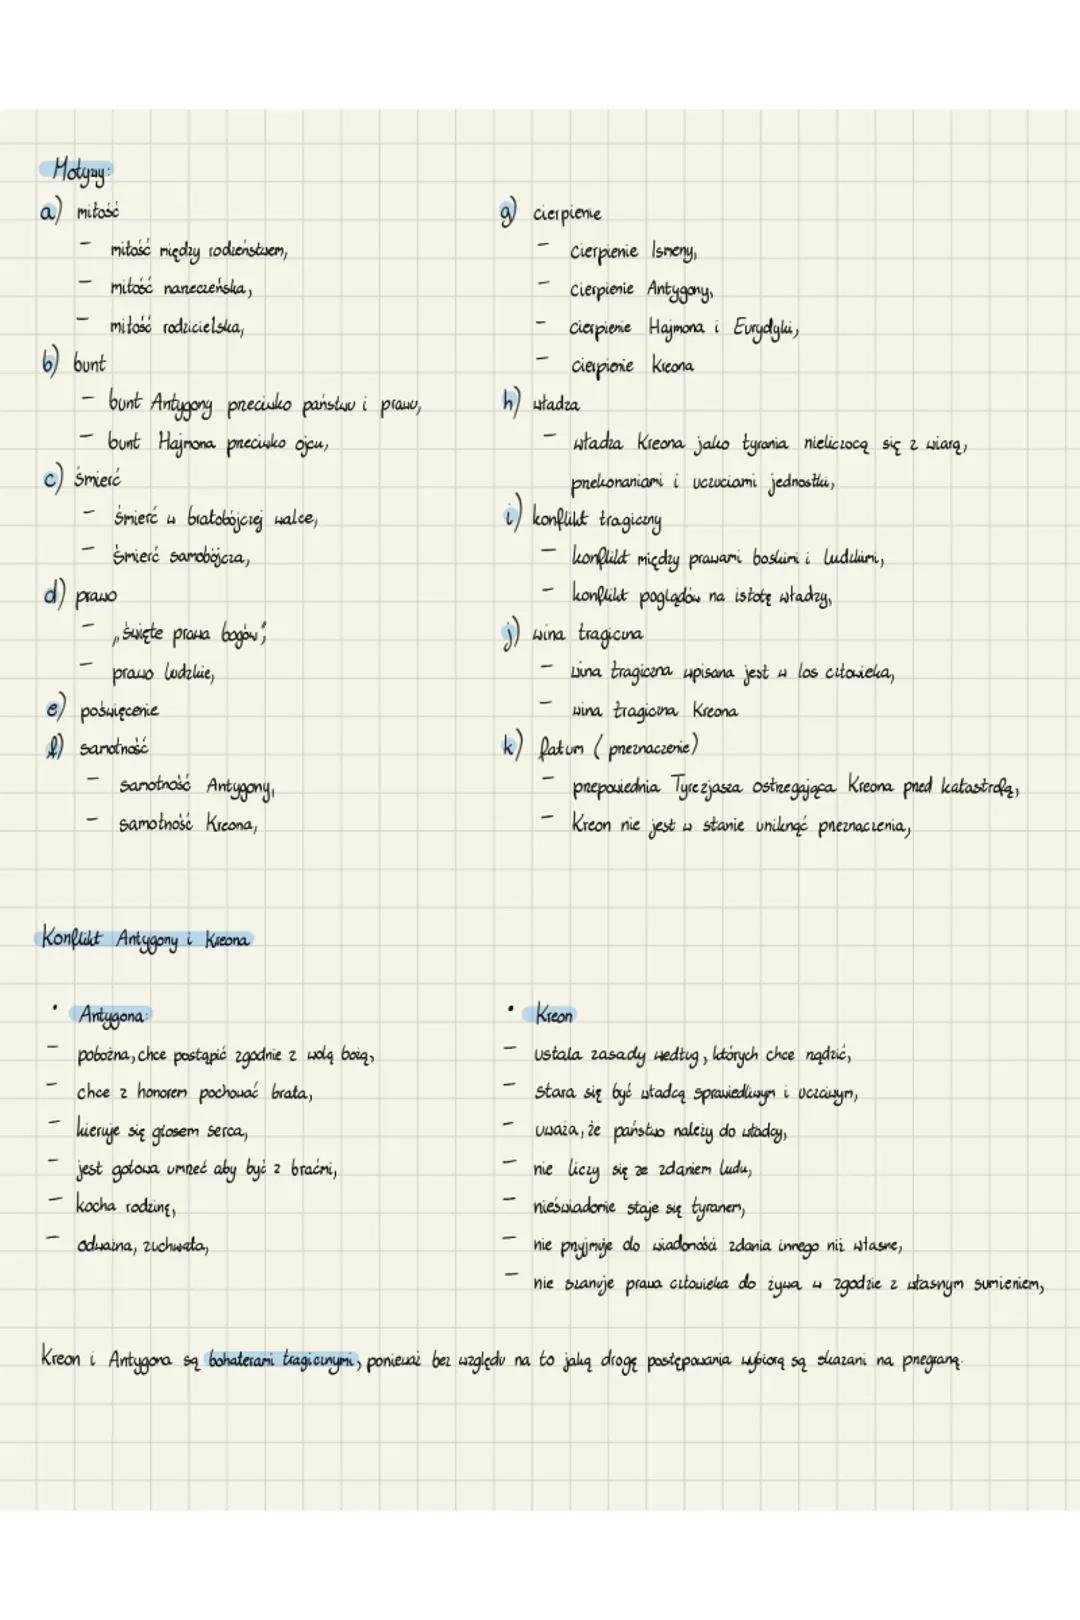 Motywy:
a) miłość
- miłość między rodzeństwem,
- miłość narzeczeńska,
- miłość rodzicielska,
b) bunt
- bunt Antygony przeciwko państwu i prawu,
- bunt Hajmona przeciwko ojcu,
c) śmierć
- śmierć w bratobójczej walce,
- śmierć samobójcza,
d) prawo
- „święte prawa bogów",
- prawo ludzkie,
e) poświęcenie
f) samotność
- samotność Antygony,
- samotność Kreona,
g) cierpienie
- cierpienie Ismeny,
- cierpienie Antygony,
- cierpienie Hajmona i Eurydyki,
- cierpienie Kreona
h) władza
- władza Kreona jako tyrania nielicząca się z wiarą,
przekonaniami i uczuciami jednostki,
i) konflikt tragiczny
- konflikt między prawami boskimi i ludzkimi,
- konflikt poglądów na istotę władzy,
j) wina tragiczna
- wina tragiczna wpisana jest w los człowieka,
- wina tragiczna Kreona
k) fatum (przeznaczenie)
- przepowiednia Tyrezjasza ostrzegająca Kreona przed katastrofą,
- Kreon nie jest w stanie uniknąć przeznaczenia,
Konflikt Antygony i Kreona
• Antygona:
- pobożna, chce postąpić zgodnie z wolą bożą,
- chce z honorem pochować brata,
- kieruje się głosem serca,
- jest gotowa umrzeć aby być z braćmi,
- kocha rodzinę,
- odważna, zuchwała,
• Kreon
- ustala zasady według, których chce rządzić,
- stara się być władcą sprawiedliwym i uczciwym,
- uważa, że państwo należy do władcy,
- nie liczy się ze zdaniem ludu,
- nieświadomie staje się tyranem,
- nie przyjmuje do wiadomości zdania innego niż własne,
- nie szanuje prawa człowieka do życia w zgodzie z własnym sumieniem,
Kreon i Antygona są bohaterami tragicznymi, ponieważ bez względu na to jaką drogę postępowania wybiorą są skazani na przegraną.